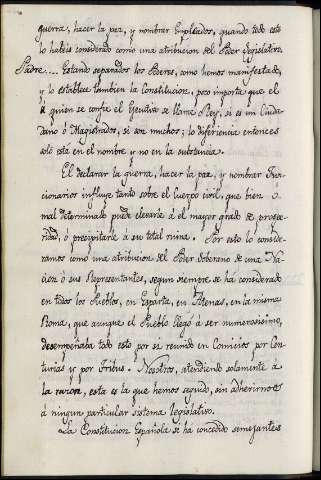 guerra, hacer la paz, y nombrar Empleados, quando todo esto
lo habéis considerado como una atribucion del Poder legislativo.
Padre... Estando separados los Poderes, como hemos manifestado,
y lo establece tambien la Constitucion, poco importa que el
á quien se confia el Egecutivo se llame Rey, si es un Ciuda-
dano ó Magistrados, si son muchos; la diferiencia entonces
solo está en el nombre y no en la substancia.
El declarar la guerra, hacer la paz, y nombrar Fun-
cionarios influye tanto sobre el Cuerpo civil, que bien ó
mal determinado puede elevarle á el mayor grado de prospe-
ridad, ó precipitarle á su total ruina. Por esto lo conside-
ramos como una atribucion del Poder Soberano de una Na-
cion ó sus Representantes, segun siempre se há considerado
en todos los Pueblos, en Esparta, en Atenas, en la misma
Roma, que aunque el Pueblo llegó á ser numerosisimo,
desempeñaba todo esto por si reunido en Comicios por Cen-
turias y por Tribus. Nosotros, atendiendo solamente á
la razon, esta es la que hemos seguido, sin adherirnos
á ningun particular sistema legislativo.
La Constitucion Española se há concedido semejantes